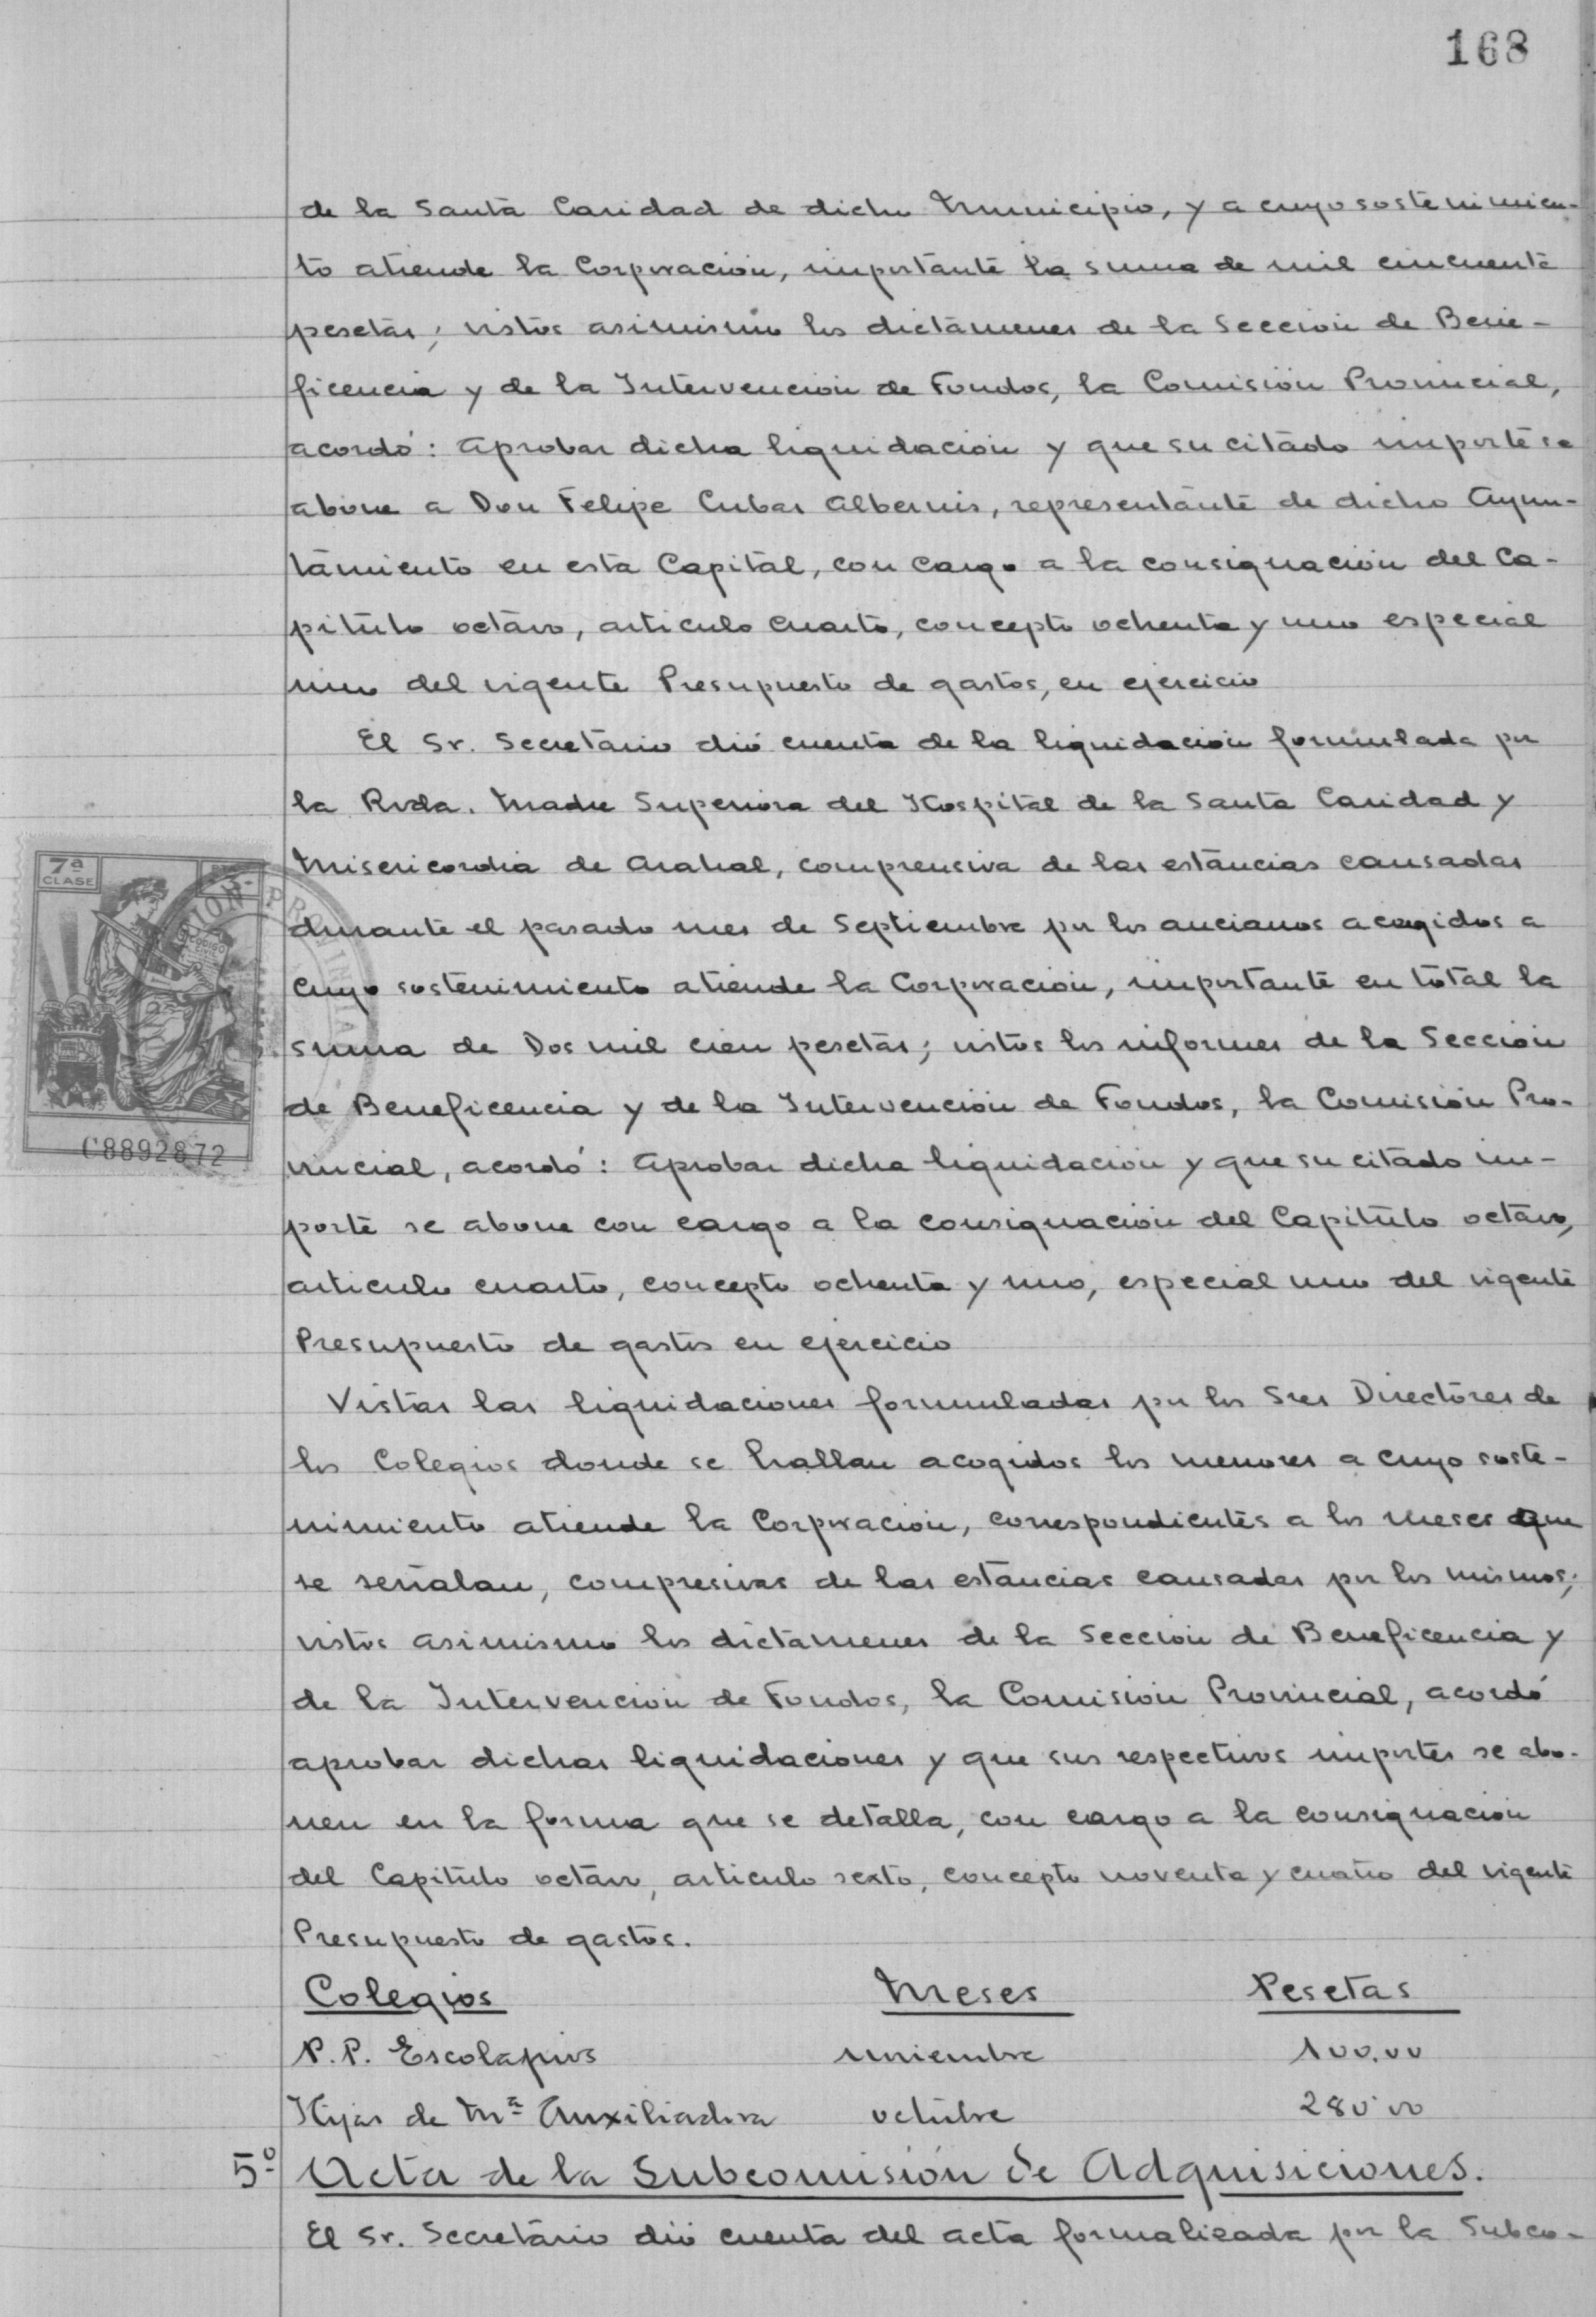 168
de la Santa Caridad de dicho Municipio, y a cuyo sostenimien-
to atiende la Corporación, importante la suma de mil cincuenta
pesetas; vistos asimismo los dictámenes de la Sección de Bene-
ficencia y de la Intervención de Fondos, la Comisión Provincial,
acordó: Aprobar dicha liquidación y que su citado importe se
abone a Don Felipe Cubas Albernis, representante de dicho Ayun-
tamiento en esta Capital, con cargo a la consignación del Ca-
pítulo octavo, artículo cuarto, concepto ochenta y uno especial
uno del vigente Presupuesto de gastos, en ejercicio
El Sr. Secretario dió cuenta de la liquidación formulada por
la Rvda. Madre Superiora del Hospital de la Santa Caridad y
Misericordia de Arahal, comprensiva de las estancias causadas
durante el pasado mes de Septiembre por los ancianos acogidos a
cuyo sostenimiento atiende la Corporación, importante en total la
suma de Dos mil cien pesetas; vistos los informes de la Sección
de Beneficencia y de la Intervención de Fondos, la Comisión Pro-
vincial, acordó: Aprobar dicha liquidación y que su citado im-
porte se abone con cargo a la consignación del Capítulo octavo,
artículo cuarto, concepto ochenta y uno, especial uno del vigente
Presupuesto de gastos en ejercicio
Vistas las liquidaciones formuladas por los Sres Directores de
los Colegios donde se hallan acogidos los menores a cuyo soste-
nimiento atiende la Corporación, correspondientes a los meses que
se señalan, compresivas de las estancias causadas por los mismos;
vistos asimismo los dictámenes de la Sección de Beneficencia y
de la Intervención de Fondos, la Comisión Provincial, acordó
aprobar dichas liquidaciones y que sus respectivos importes se abo-
nen en la forma que se detalla, con cargo a la consignación
del Capítulo octavo, artículo sexto, concepto noventa y cuatro del vigente
Presupuesto de gastos.
Colegios Meses Pesetas
P.P. Escolapios noviembre 100.00
Hijas de Mª Auxiliadora octubre 280'00
5º Acta de la Subcomisión de Adquisiciones.
El Sr. Secretario dió cuenta del acta formalizada por la Subco-
7ª
CLASE
C8892872